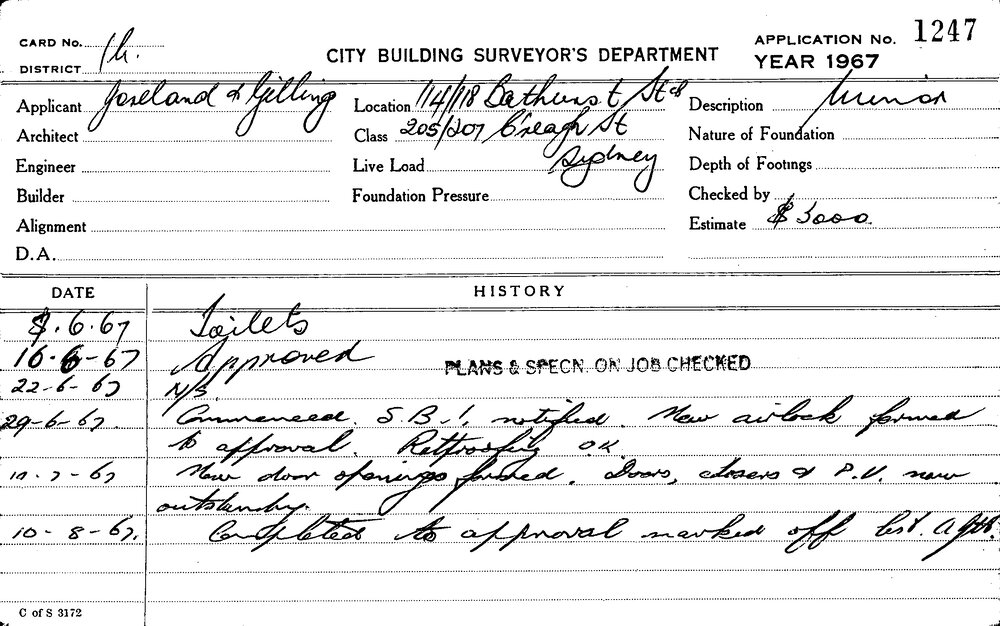 CARD No. 1h. CITY BUILDING SURVEYOR'S DEPARTMENT APPLICATION No. 1247
DISTRICT YEAR 1967
Applicant Joseland & Gilling Location 114/118 Bathurst St & Description Minor
Architect Class 205/207 C'reagh St Nature of Foundation
Engineer Live Load Sydney Depth of Footings
Builder Foundation Pressure Checked by
Alignment Estimate $ 3000
D.A.
DATE HISTORY
8.6.67 Toilets
16-6-67 Approved PLANS & SPECN. ON JOB CHECKED
22-6-67 N/S.
29-6-67. Commenced. S.B.I. notified. New airlock formed
to approval. OK.
10-7-67 New door openings formed. Doors, closers & P.V. now
outstanding.
10-8-67. Completed to approval marked off list.
C of S 3172